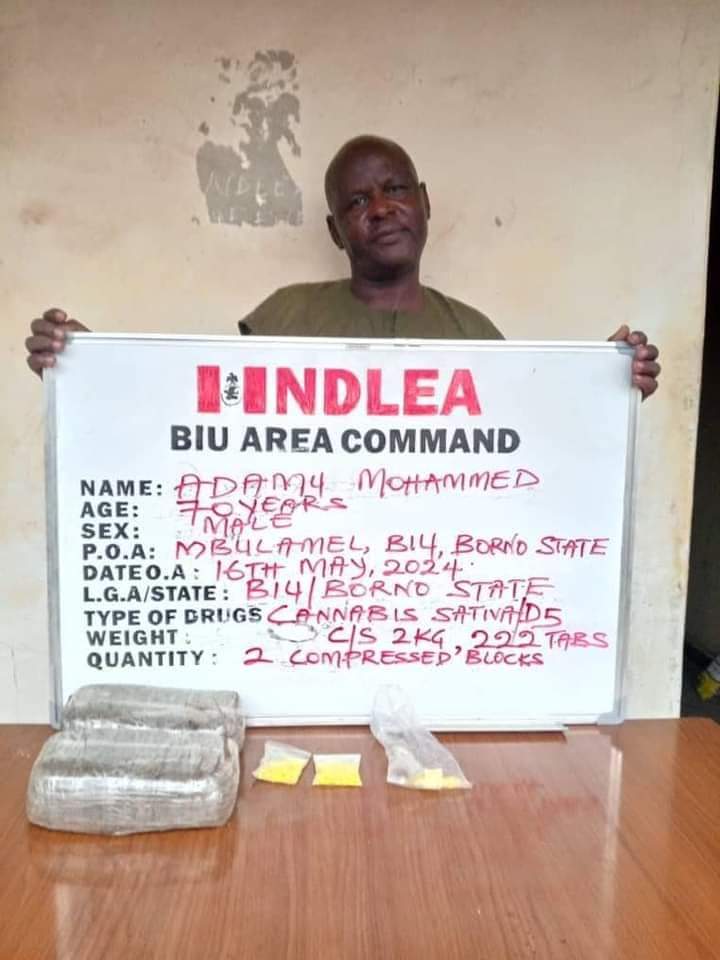 NDLEA
NDLEA
BIU AREA COMMAND
NAME: ADAMU MOHAMMED
AGE: 70 YEARS
SEX: MALE
P.O.A: MBULAMEL, BIU, BORNO STATE
DATE O.A: 16TH MAY, 2024.
L.G.A/STATE: BIU/BORNO STATE
TYPE OF DRUGS CANNABIS SATIVA/D5
WEIGHT: C/S 2KG, 222 TABS
QUANTITY: 2 COMPRESSED BLOCKS